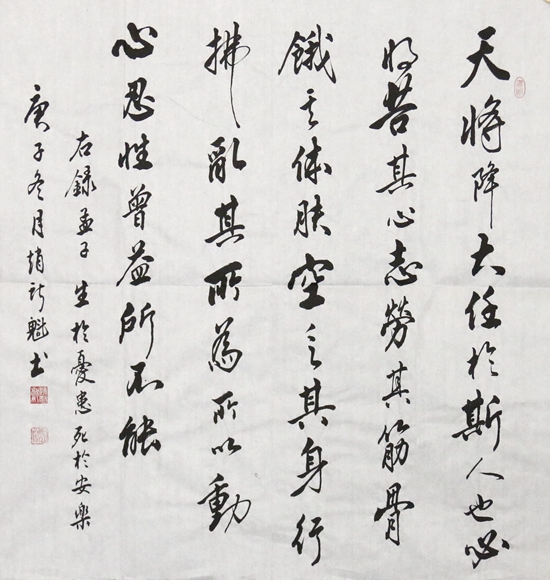 天将降大任於斯人也必
先苦其心志勞其筋骨
餓其体肤空乏其身行
拂亂其所為所以動
心忍性曾益所不能
右録孟子生於憂患死於安樂
庚子冬月趙新魁书